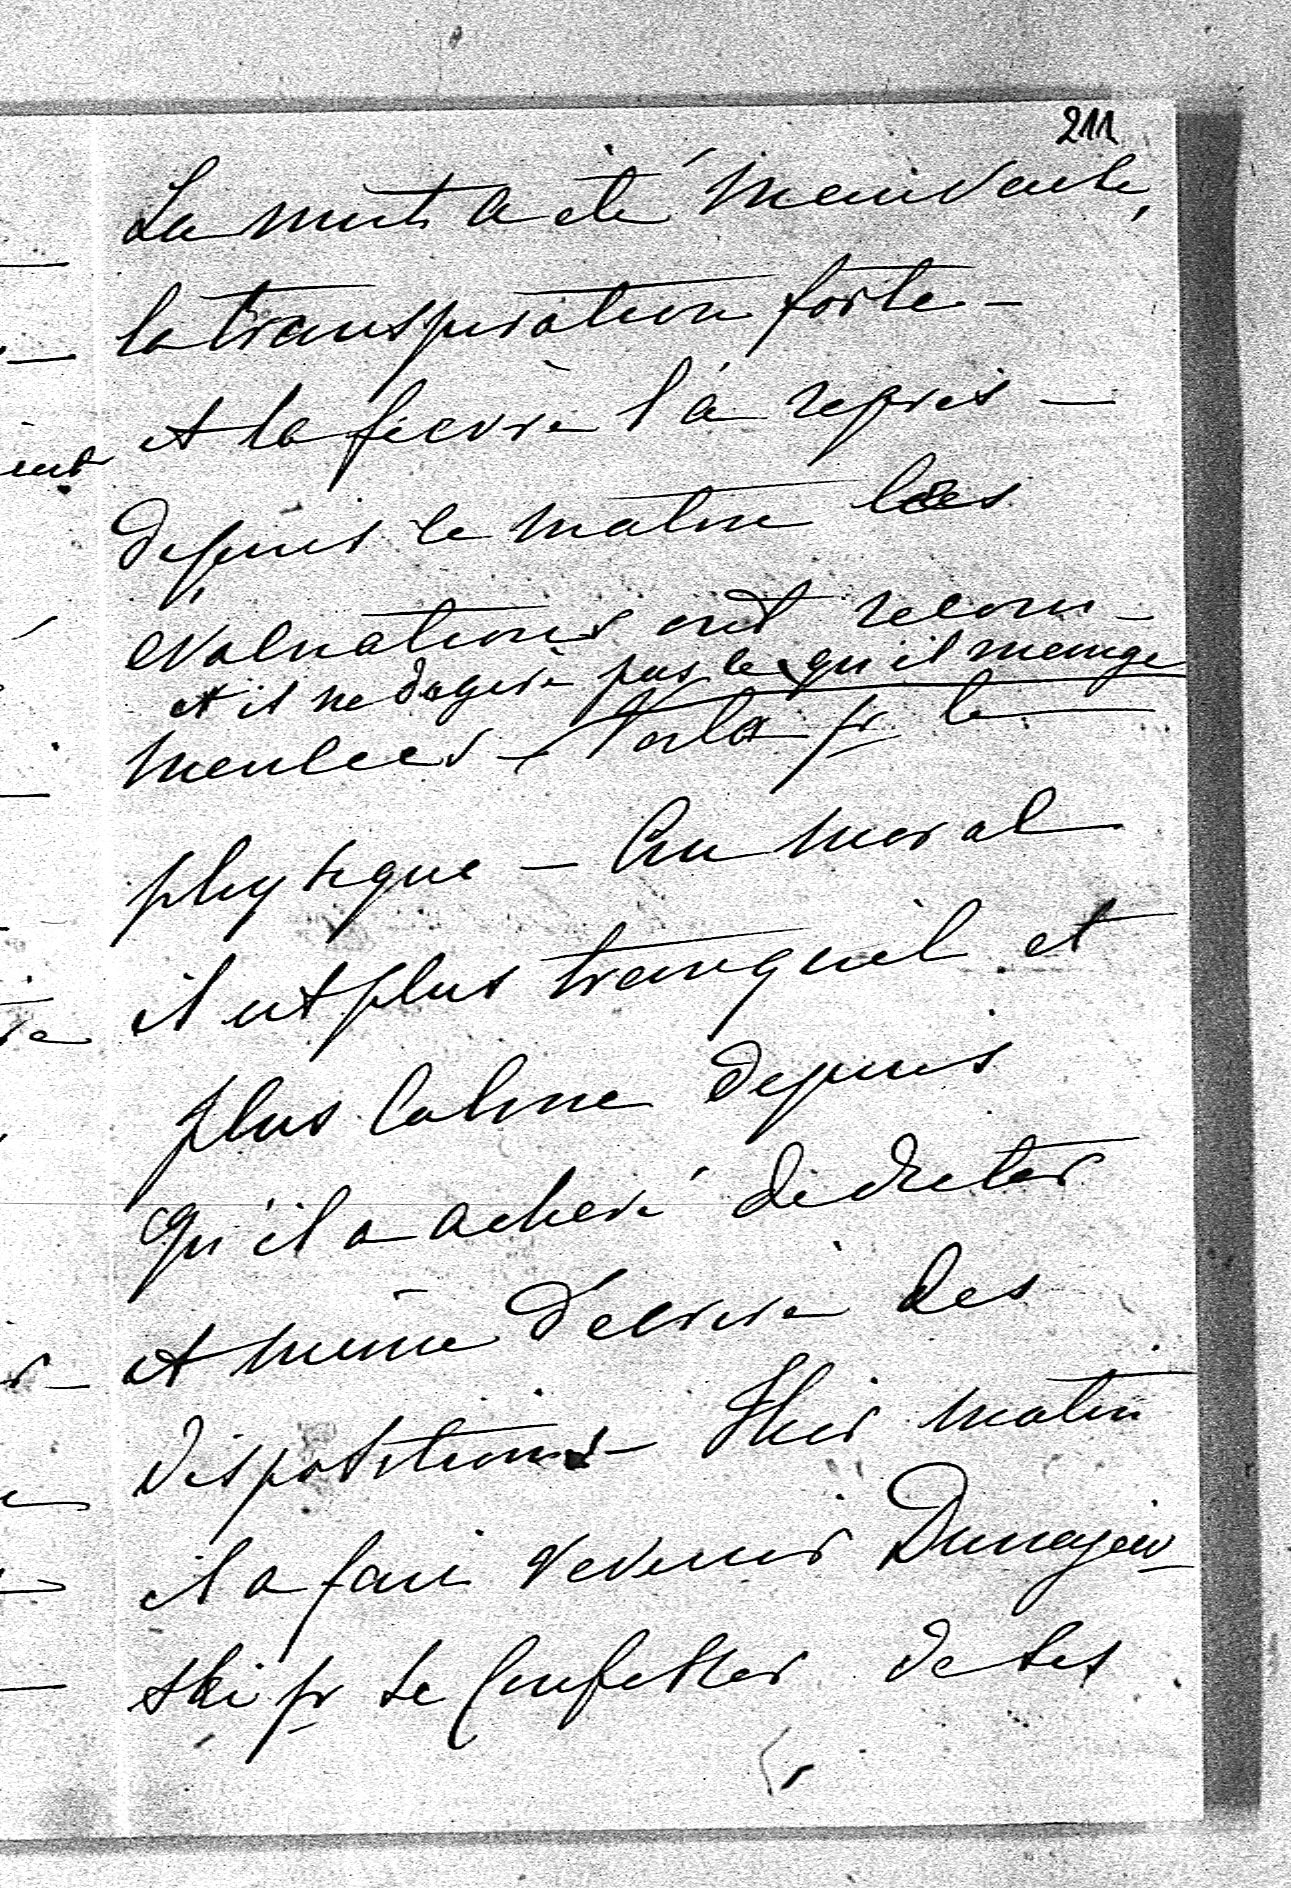 211
La nuit a été mauvaise,
la transpiration forte –
et la fièvre l'a repris –
depuis le matin les
évacuations ont recom-
et il ne digère pas ce qu'il mange
mencées – Voila pr le
physique – Au moral
il est plus tranquil et
plus calme depuis
qu'il a achevé de dicter
et même d'écrire des
dispositions – Hier matin
il a fait venir Dunajew-
ski pr se confesser de ses